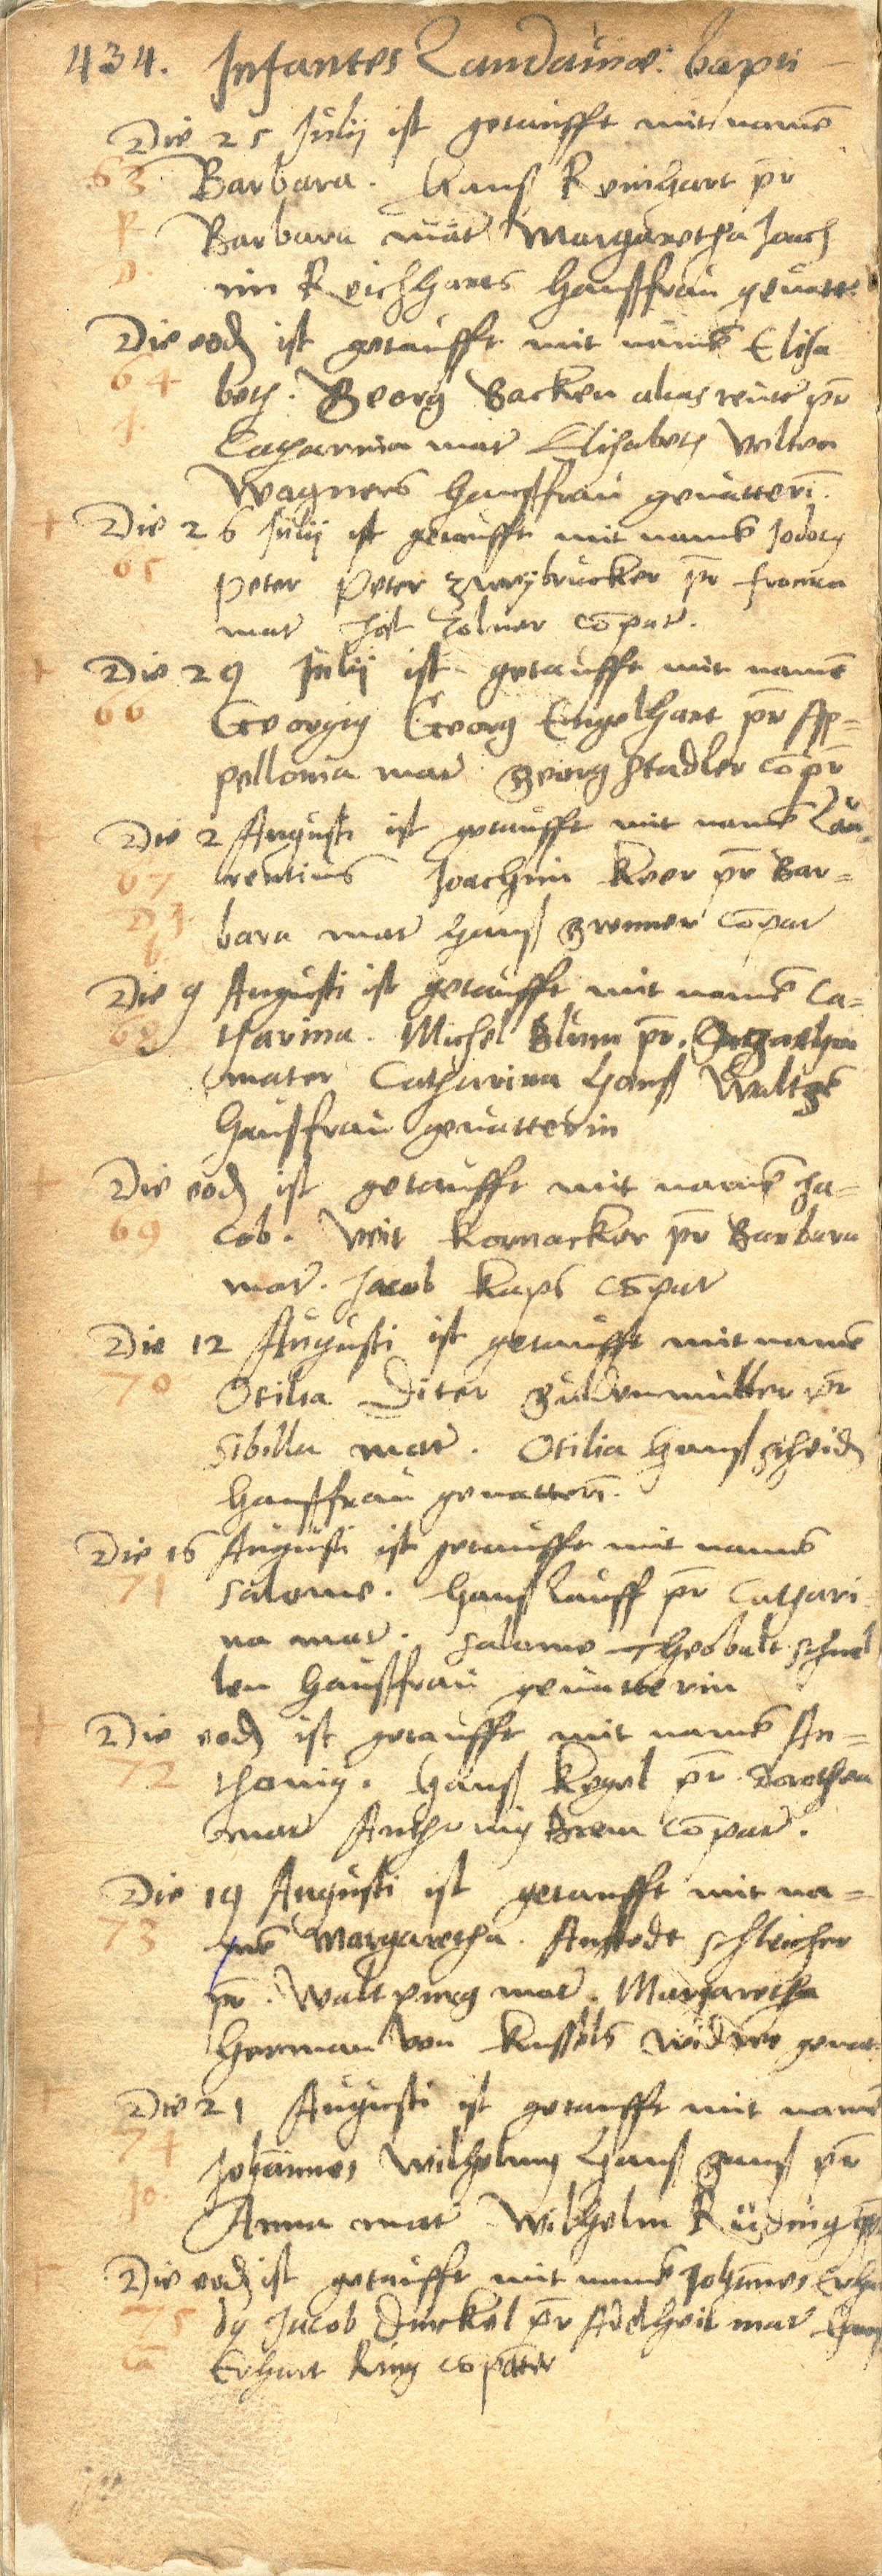 434. Infantes Landauiæ: bapti
Die 25 Julij ist getaufft mit namē
63 Barbara. Hans Reinhart pr̄
Barbara mat Margaretha Joach
D. im Reichharts haußfrau geuatt:
Die eod ist getaufft mit namē Elisa
64 beth. Georg Backen alias pr̄
Catharina mat Elisabeth Velten
Wagners haußfrau geuatterī.
+ Die 26 Julij ist getaufft mit namē Jodocy
65 Peter Peter Zweybrucker pr̄
mat Jost Zolner cōpat.
+ Die 29 Julij ist getaufft mit namē
66 Georgiy Georg Engelhart pr̄ Ap=
pellonia mat Georg Stadler cōpr̄
+ Die 2 Augusti ist getaufft mit namē Lau=
67 rentius Joachim pr̄ Bar=
bara mat Hanß cōpat
Die 9 Augusti ist getaufft mit namē Ca=
68 tharina. Michel Blum pr̄.
mater Catharina Hanß Waltzē
haußfrau geuatterin
+ Die eod ist getaufft mit namē Ja=
69 cob. Veit Kornacker pr̄ Barbara
mat. Jacob Kaps cōpat
Die 12 Augusti ist getaufft mit namē
70 Otilia Diter Guldenmuller pr̄
Sibilla mat. Otilia Hanß Scheid
haußfrau geuatterī.
Die 16 Augusti ist getaufft mit namē
71 Salome. Hanß Lauff pr̄ Cathari
na mat. Salome Theobalt Schnel
len haußfrau geuatterin
+ Die eod ist getaufft mit namē An=
72 thoniy. Hanß Kegel pr̄ Dorothea
mat Anthoniy cōpat.
Die 19 Augusti ist getaufft mit na=
73 mē Margaretha. Anstedt Schleicher
pr̄. Waltpurg mat. Margaretha
Herman von Kussels widwe geuat
+ Die 21 Augusti ist getaufft mit namē
74 Johannes Wilhelmy Hanß Gans pr̄
Jo. Anna mat Wilhelm Rüding
+ Die eod ist getaufft mit namē Johānes Erhar
75 dy Jacob Dinckel pr̄ Adelheit mat Hanß
Erhart Ring cōpater